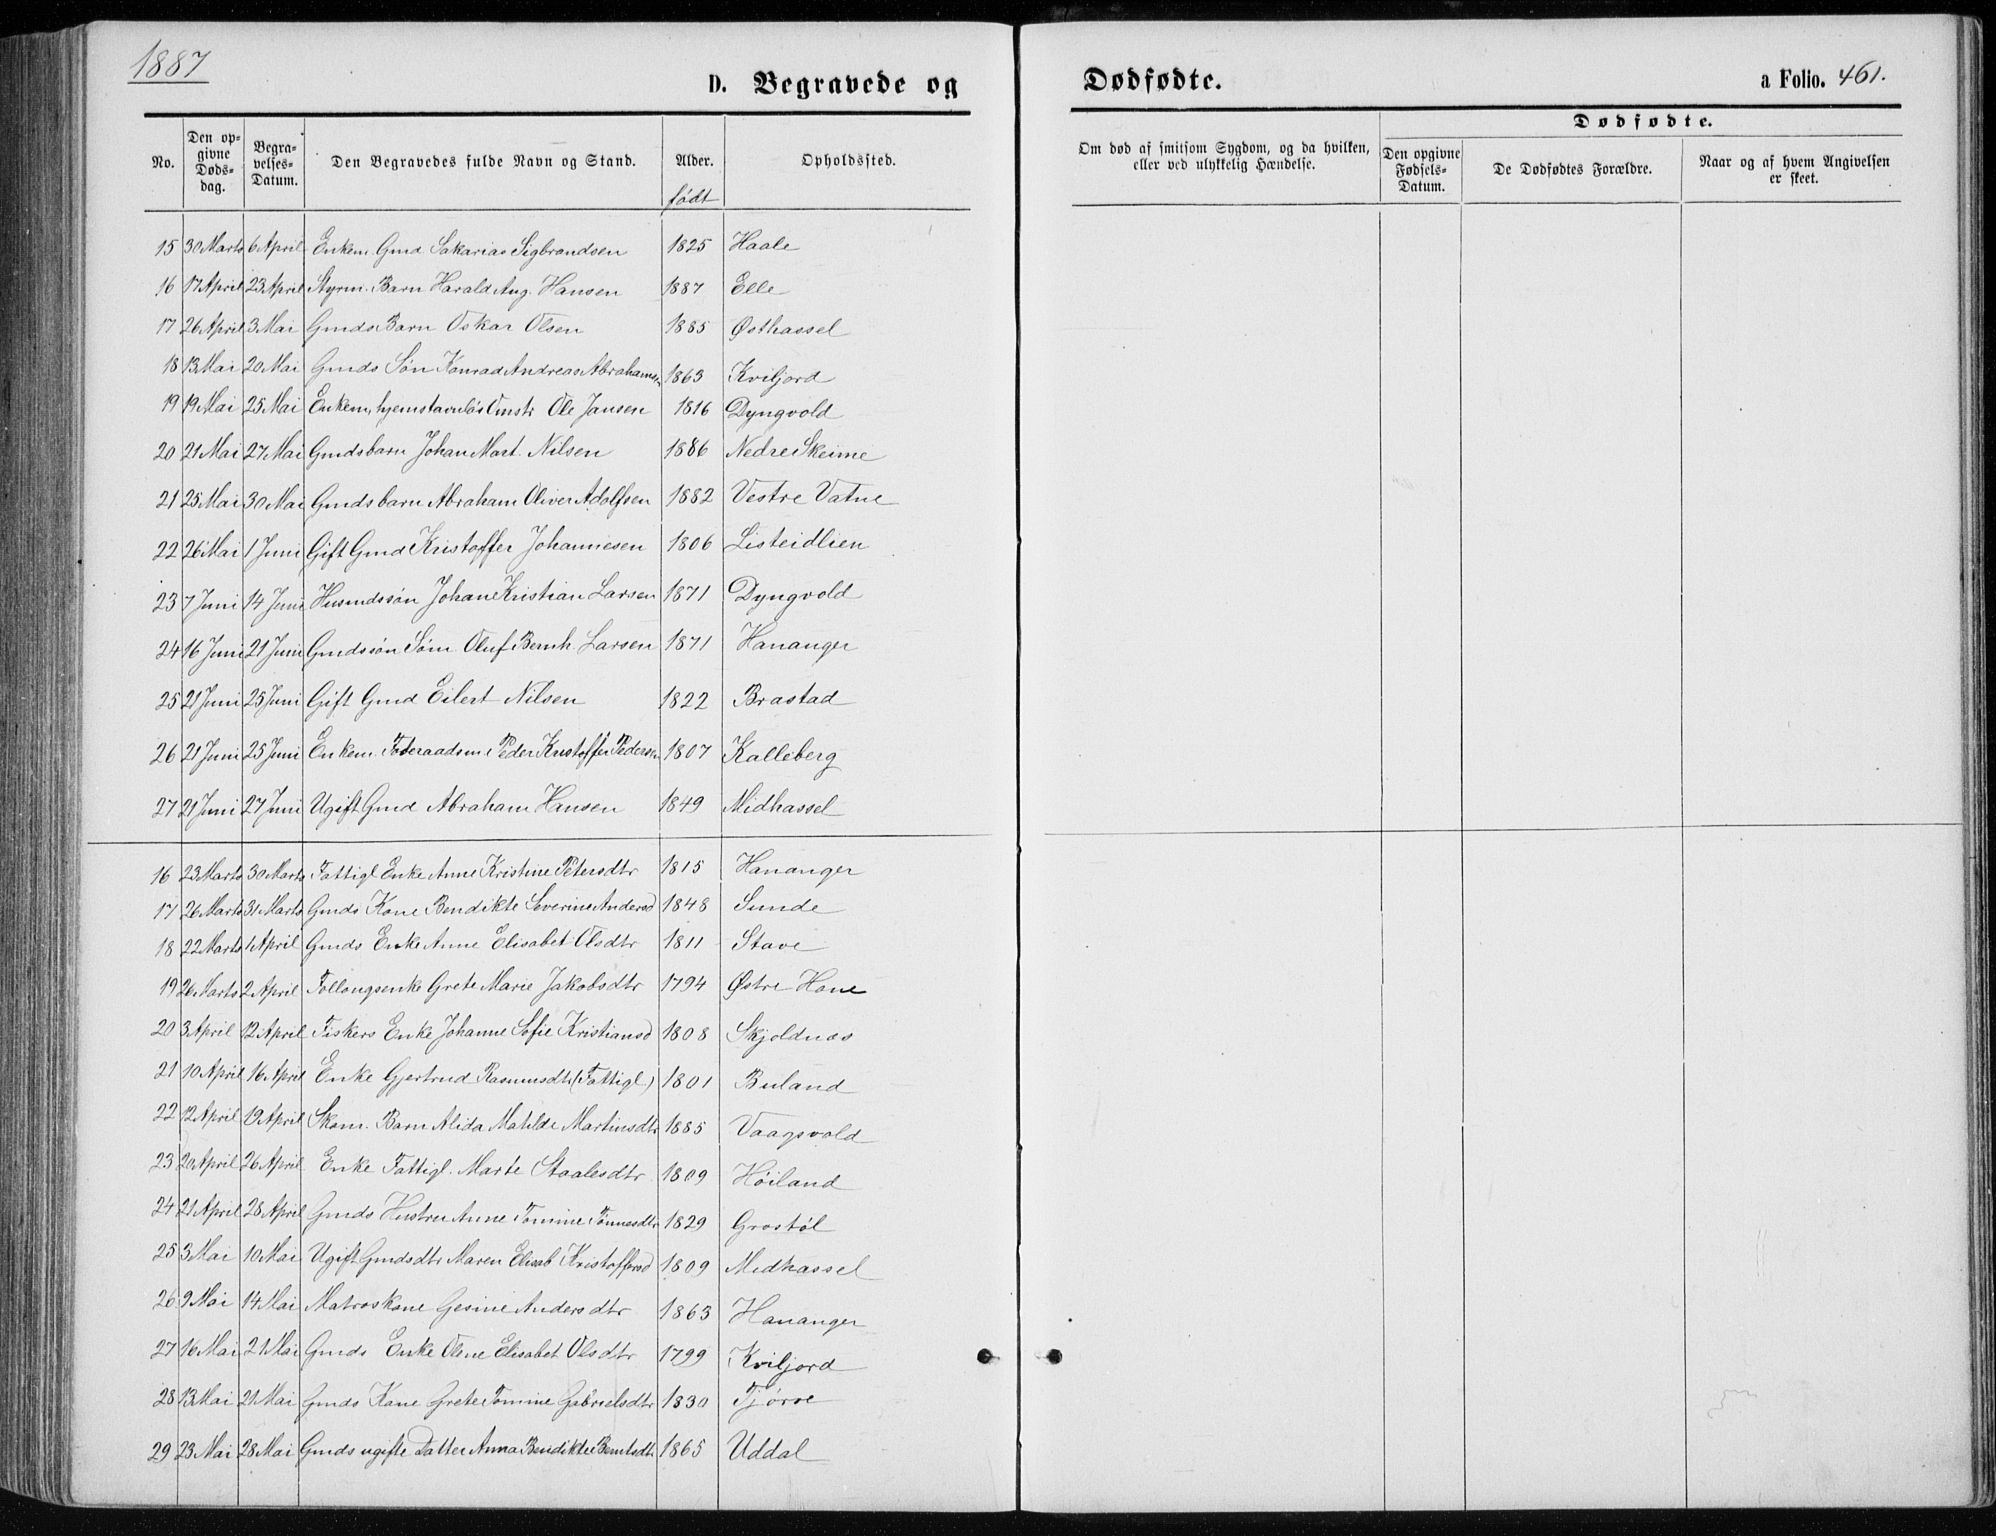 1887
D. Begravede og Dødfødte. a Folio. 461.
No. Den opgivne Dødsdag. Begravelses-Datum. Den Begravedes fulde Navn og Stand. Alder. født Opholdssted. Om død af smitsom Sygdom, og da hvilken, eller ved ulykkelig Hændelse. Dødfødte. Den opgivne Fødsels-Datum. De Dødfødtes Forældre. Naar og af hvem Angivelsen er skeet.
15 30 Marts 6 April Enkem. Gmd Sakarias Sigbrandsen 1825 Haale
16 17 April 23 April Styrm. Barn Harald Aug. Hansen 1887 Elle
17 26 April 3 Mai Gmds Barn Oskar Olsen 1885 Østhassel
18 13 Mai 20 Mai Gmds Søn Konrad Andreas Abrahamsen 1863 Kviljord
19 19 Mai 25 Mai Enkem, hjemstavnløs Omstr Ole Jansen 1816 Dyngvold
20 21 Mai 27 Mai Gmdsbarn Johan Mart. Nilsen 1886 Nedre Skeime
21 25 Mai 30 Mai Gmdsbarn Abraham Oliver Adolfsen 1882 Vestre Vatne
22 26 Mai 1 Juni Gift Gmd Kristoffer Johannesen 1806 Listeidlien
23 7 Juni 14 Juni Husmdssøn Johan Kristian Larsen 1871 Dyngvold
24 16 Juni 21 Juni Gmdssøn Søm Oluf Bernh. Larsen 1871 Hananger
25 21 Juni 25 Juni Gift Gmd Eilert Nilsen 1822 Brastad
26 21 Juni 25 Juni Enkem. Føderaadsm. Peder Kristoffer Pedersen 1807 Kalleberg
27 21 Juni 27 Juni Ugift Gmd Abraham Hansen 1849 Midhassel
16 23 Marts 30 Marts Fattigl Enke Anne Kristine Petersdtr 1815 Hananger
17 26 Marts 31 Marts Gmds Kone Bendikte Severine Andersd 1848 Sunde
18 22 Marts 1 April Gmds Enke Anne Elisabet Olsdtr 1811 Stave
19 26 Marts 2 April Follougsenke Grete Marie Jakobsdtr 1794 Østre Hane
20 3 April 12 April Fiskers Enke Johanne Sofie Kristiansd 1808 Skjoldnæs
21 10 April 16 April Enke Gjertrud Rasmusdt (Fattigl) 1801 Buland
22 12 April 19 April Skom. Barn Alida Matilde Martinsdtr 1885 Vaagsvold
23 20 April 26 April Enke Fattigl. Marte Staalesdtr 1809 Høiland
24 21 April 28 April Gmds Hustru Anne Tomine Tønnesdtr 1829 Grostøl
25 3 Mai 10 Mai Ugift Gmdsdtr Maren Elisab Kristoffersd 1809 Midhassel
26 9 Mai 14 Mai Matroskone Gesine Andersdtr 1863 Hananger
27 16 Mai 21 Mai Gmds Enke Olene Elisabet Olsdtr 1799 Kviljord
28 13 Mai 21 Mai Gmds Kone Grete Tomine Gabrielsdtr 1830 Tjørve
29 23 Mai 28 Mai Gmds ugifte Datter Anna Bendikte Berntsdtr 1865 Uddal